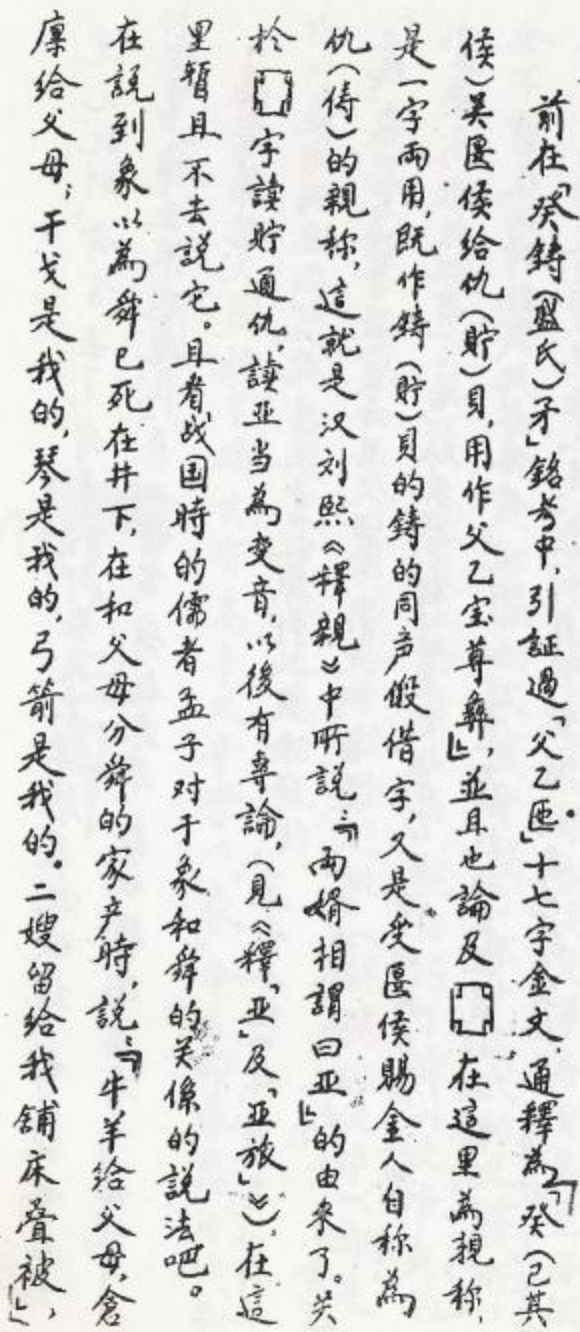 前在「癸鑄(盟氏)矛」銘考中,引証過「父乙匜」十七字金文.通釋為「癸(己其
侯)㠱匽侯给仇(貯)貝,用作父乙宝尊彝」,並且也論及亞在這里為親称,
是一字兩用,既作鑄(貯)貝的鑄的同声假借字,又是受匽侯賜金人自称為
仇(俦)的親称,這就是汉刘熙《釋親》中所説:「两婿相謂曰亚」的由来了。关
於亞字讀貯通仇,讀亚当為变音,以後有專論,(見《釋「亚」及「亚旅」》),在這
里暂且不去説它。且看战国時的儒者孟子对于象和舜的关係的説法吧。
在説到象以為舜已死在井下,在和父母分舜的家产時,説:「牛羊给父母,倉
廪给父母;干戈是我的,琴是我的,弓箭是我的。二嫂留给我舖床叠被」,